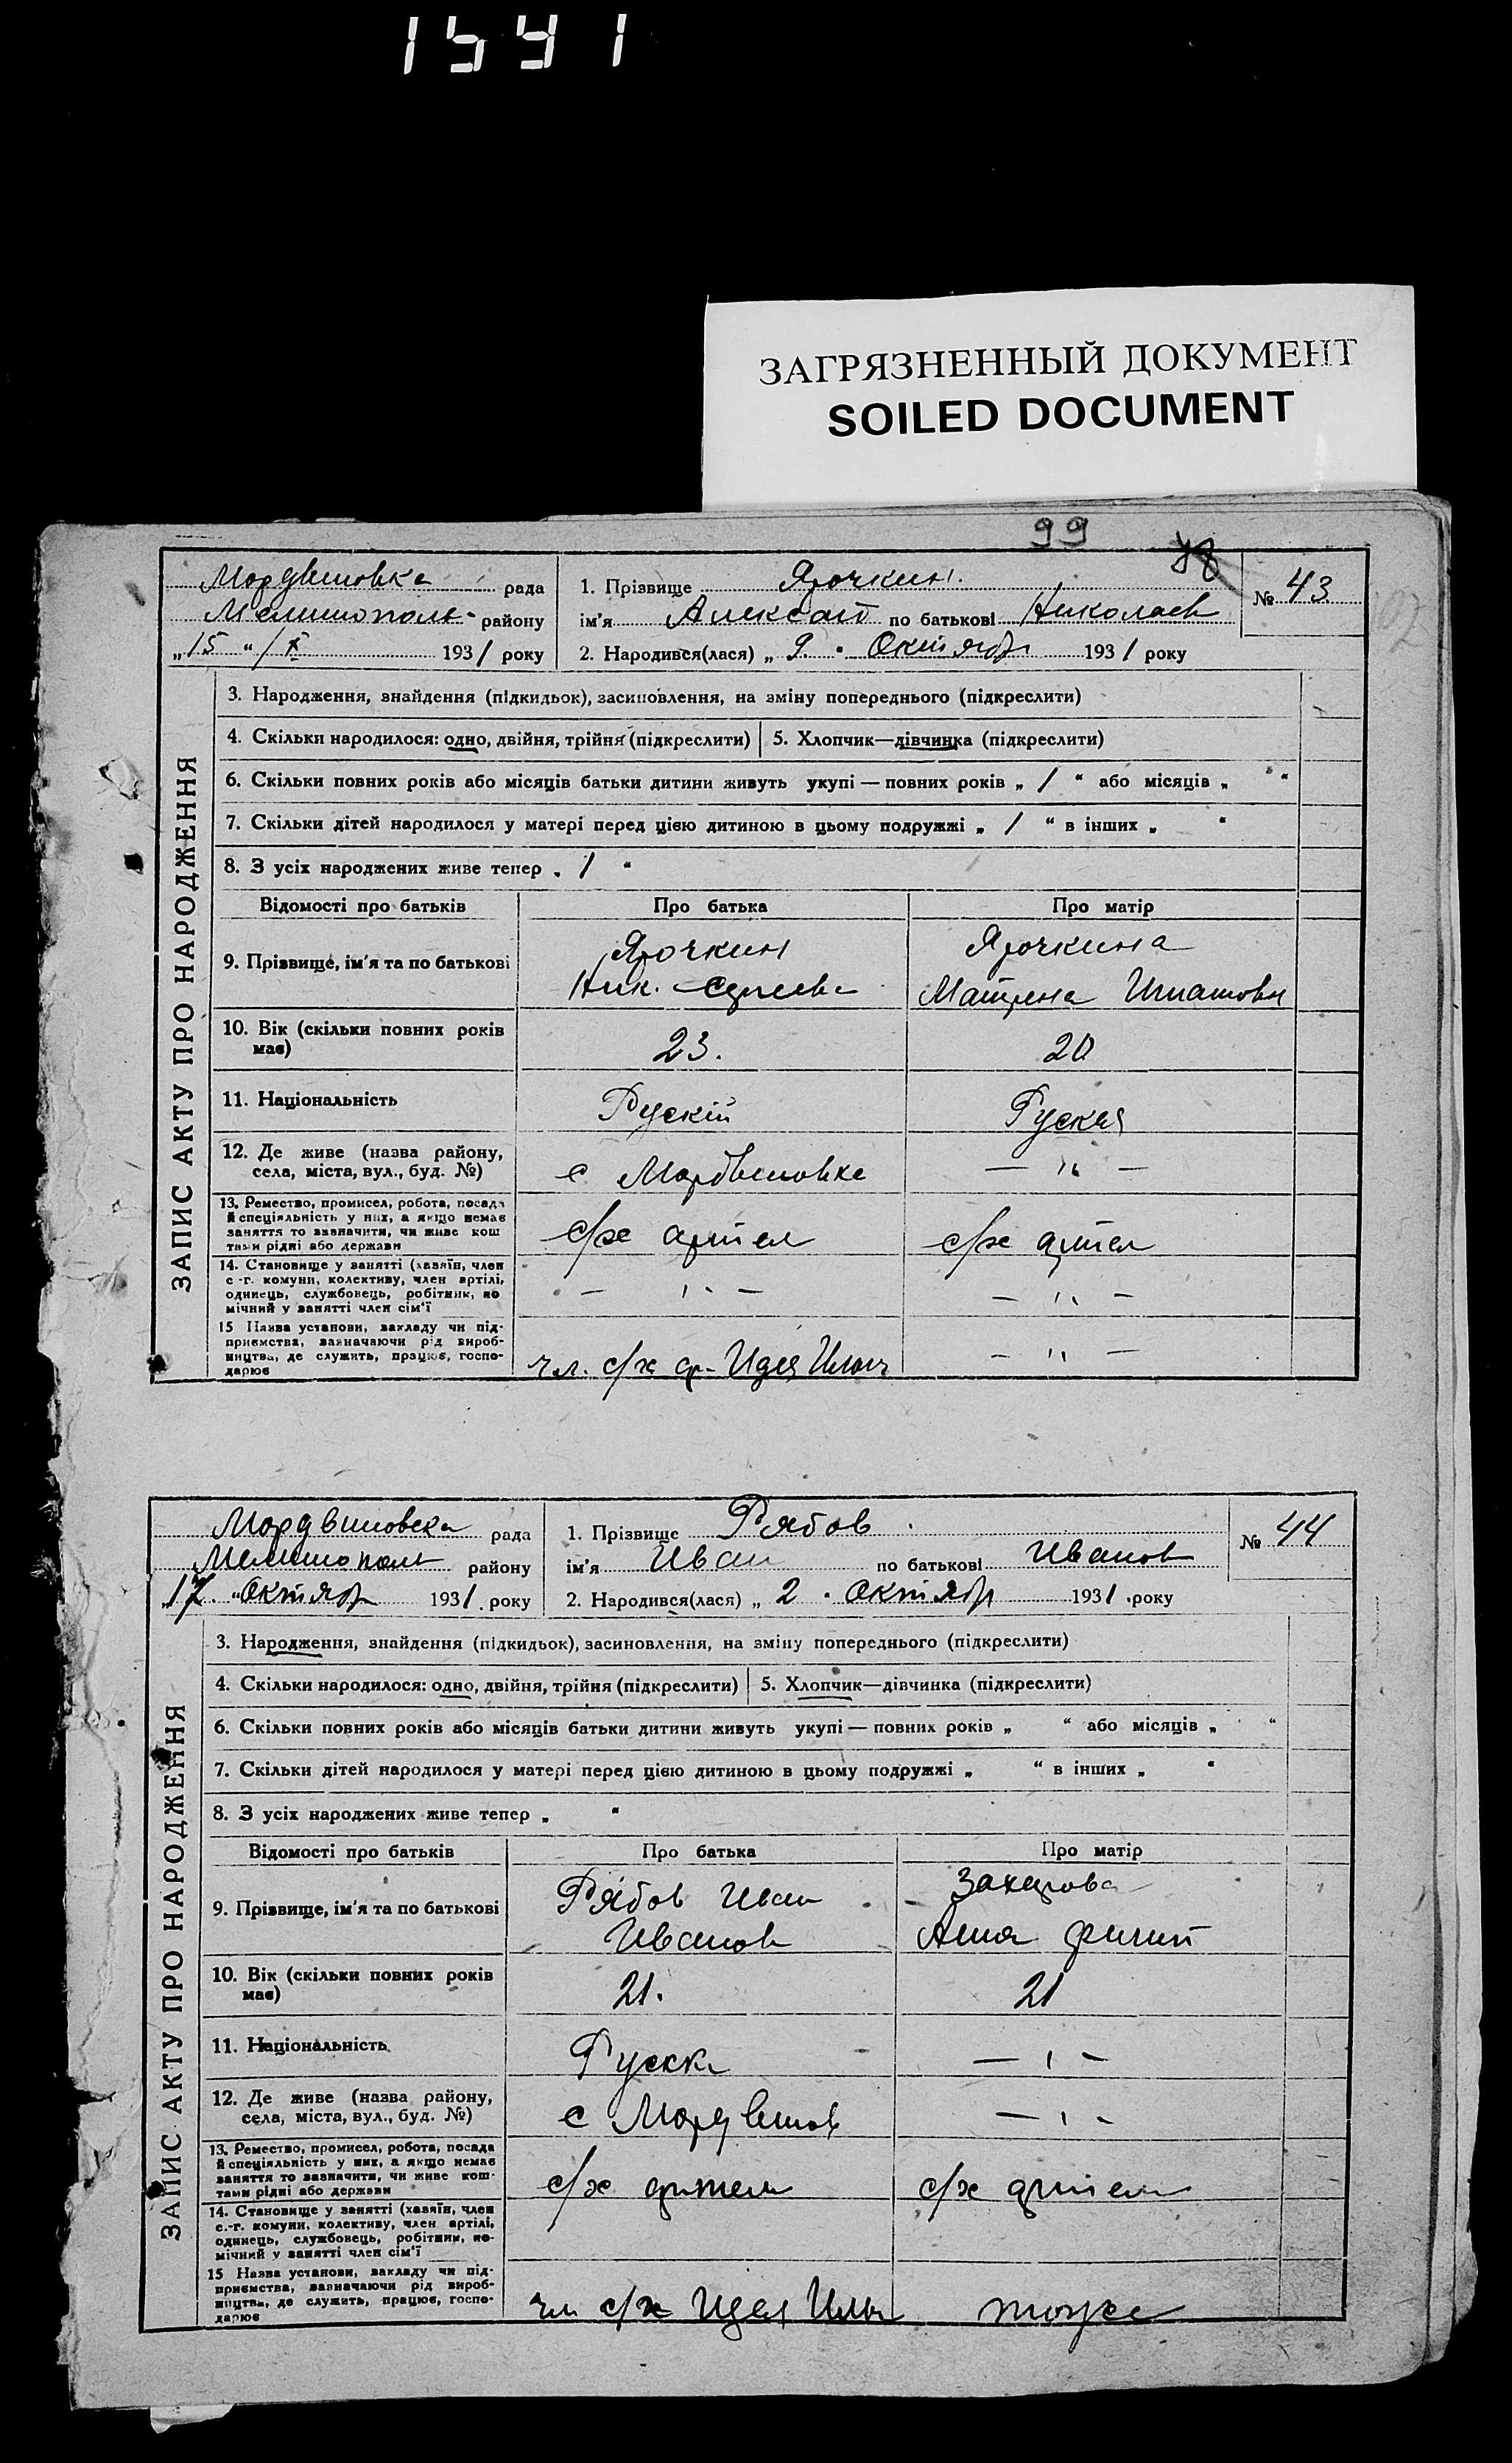 1541
ЗАГРЯЗНЕННЫЙ ДОКУМЕНТ
SOILED DOCUMENT
99
43
Мордвиновка рада
Мелитополь району
„15 “ /X 1931 року
1. Прізвище Ярочкин.
ім'я Александ по батькові Николаев
2. Народився(лася) „ 9. Октябр 1931 року
№ 43
ЗАПИС АКТУ ПРО НАРОДЖЕННЯ
3. Народження, знайдення (підкидьок), засиновлення, на зміну попереднього (підкреслити)
4. Скільки народилося: одно, двійня, трійня (підкреслити) 5. Хлопчик—дівчинка (підкреслити)
6. Скільки повних років або місяців батьки дитини живуть укупі — повних років „ / “ або місяців „ “
7. Скільки дітей народилося у матері перед цією дитиною в цьому подружжі „ / “ в інших „ “
8. З усіх народжених живе тепер „ / “
Відомості про батьків Про батька Про матір
9. Прізвище, ім'я та по батькові
Ярочкин
Ник.
Ярочкина
Матрена Игнатовн
10. Вік (скільки повних років має)
23. 20
11. Національність Рускій Руская
12. Де живе (назва району,
села, міста, вул., буд. №)
с Мордвиновке — " —
13. Ремество, промисел, робота, посада
й спеціяльність у них, а якщо немає
заняття то зазначити, чи живе кош
тами рідні або держави
с/хе артел с/хе артел
14. Становище у занятті (хазяїн, член
с.-г. комуни, колективу, член артілі,
одинець, службовець, робітник, по
мічний у занятті член сім'ї
— " — — " —
15 Назва установи, закладу чи під-
приємства, зазначаючи рід вироб-
ництва, де служить, працює, госпо-
дарює
чл. с/х ар- Идея Илич — " —
Мордвиновка рада
Мелитополь району
„17. “Октябр 1931. року
1. Прізвище Рябов.
ім'я Иван по батькові Иванов
2. Народився(лася) „ 2 “ Октябр 1931 року
№ 44
ЗАПИС АКТУ ПРО НАРОДЖЕННЯ
3. Народження, знайдення (підкидьок), засиновлення, на зміну попереднього (підкреслити)
4. Скільки народилося: одно, двійня, трійня (підкреслити) 5. Хлопчик—дівчинка (підкреслити)
6. Скільки повних років або місяців батьки дитини живуть укупі — повних років „ “ або місяців „ “
7. Скільки дітей народилося у матері перед цією дитиною в цьому подружжі „ “ в інших „ “
8. З усіх народжених живе тепер „ “
Відомості про батьків Про батька Про матір
9. Прізвище, ім'я та по батькові
Рябов Иван
Иванов
Захарова
Анна Филип
10. Вік (скільки повних років має)
21. 21
11. Національність Русск — " —
12. Де живе (назва району,
села, міста, вул., буд. №)
с Мордвинов — " —
13. Ремество, промисел, робота, посада
й спеціяльність у них, а якщо немає
заняття то зазначити, чи живе кош-
тами рідні або держави
с/хе артели с/хе артели
14. Становище у занятті (хазяїн, член
с.-г. комуни, колективу, член артілі,
одинець, службовець, робітник, по-
мічний у занятті член сім'ї
15 Назва установи, закладу чи під-
приємства, зазначаючи рід вироб-
ництва, де служить, працює, госпо-
дарює
чл с/х Идея Илич тоже